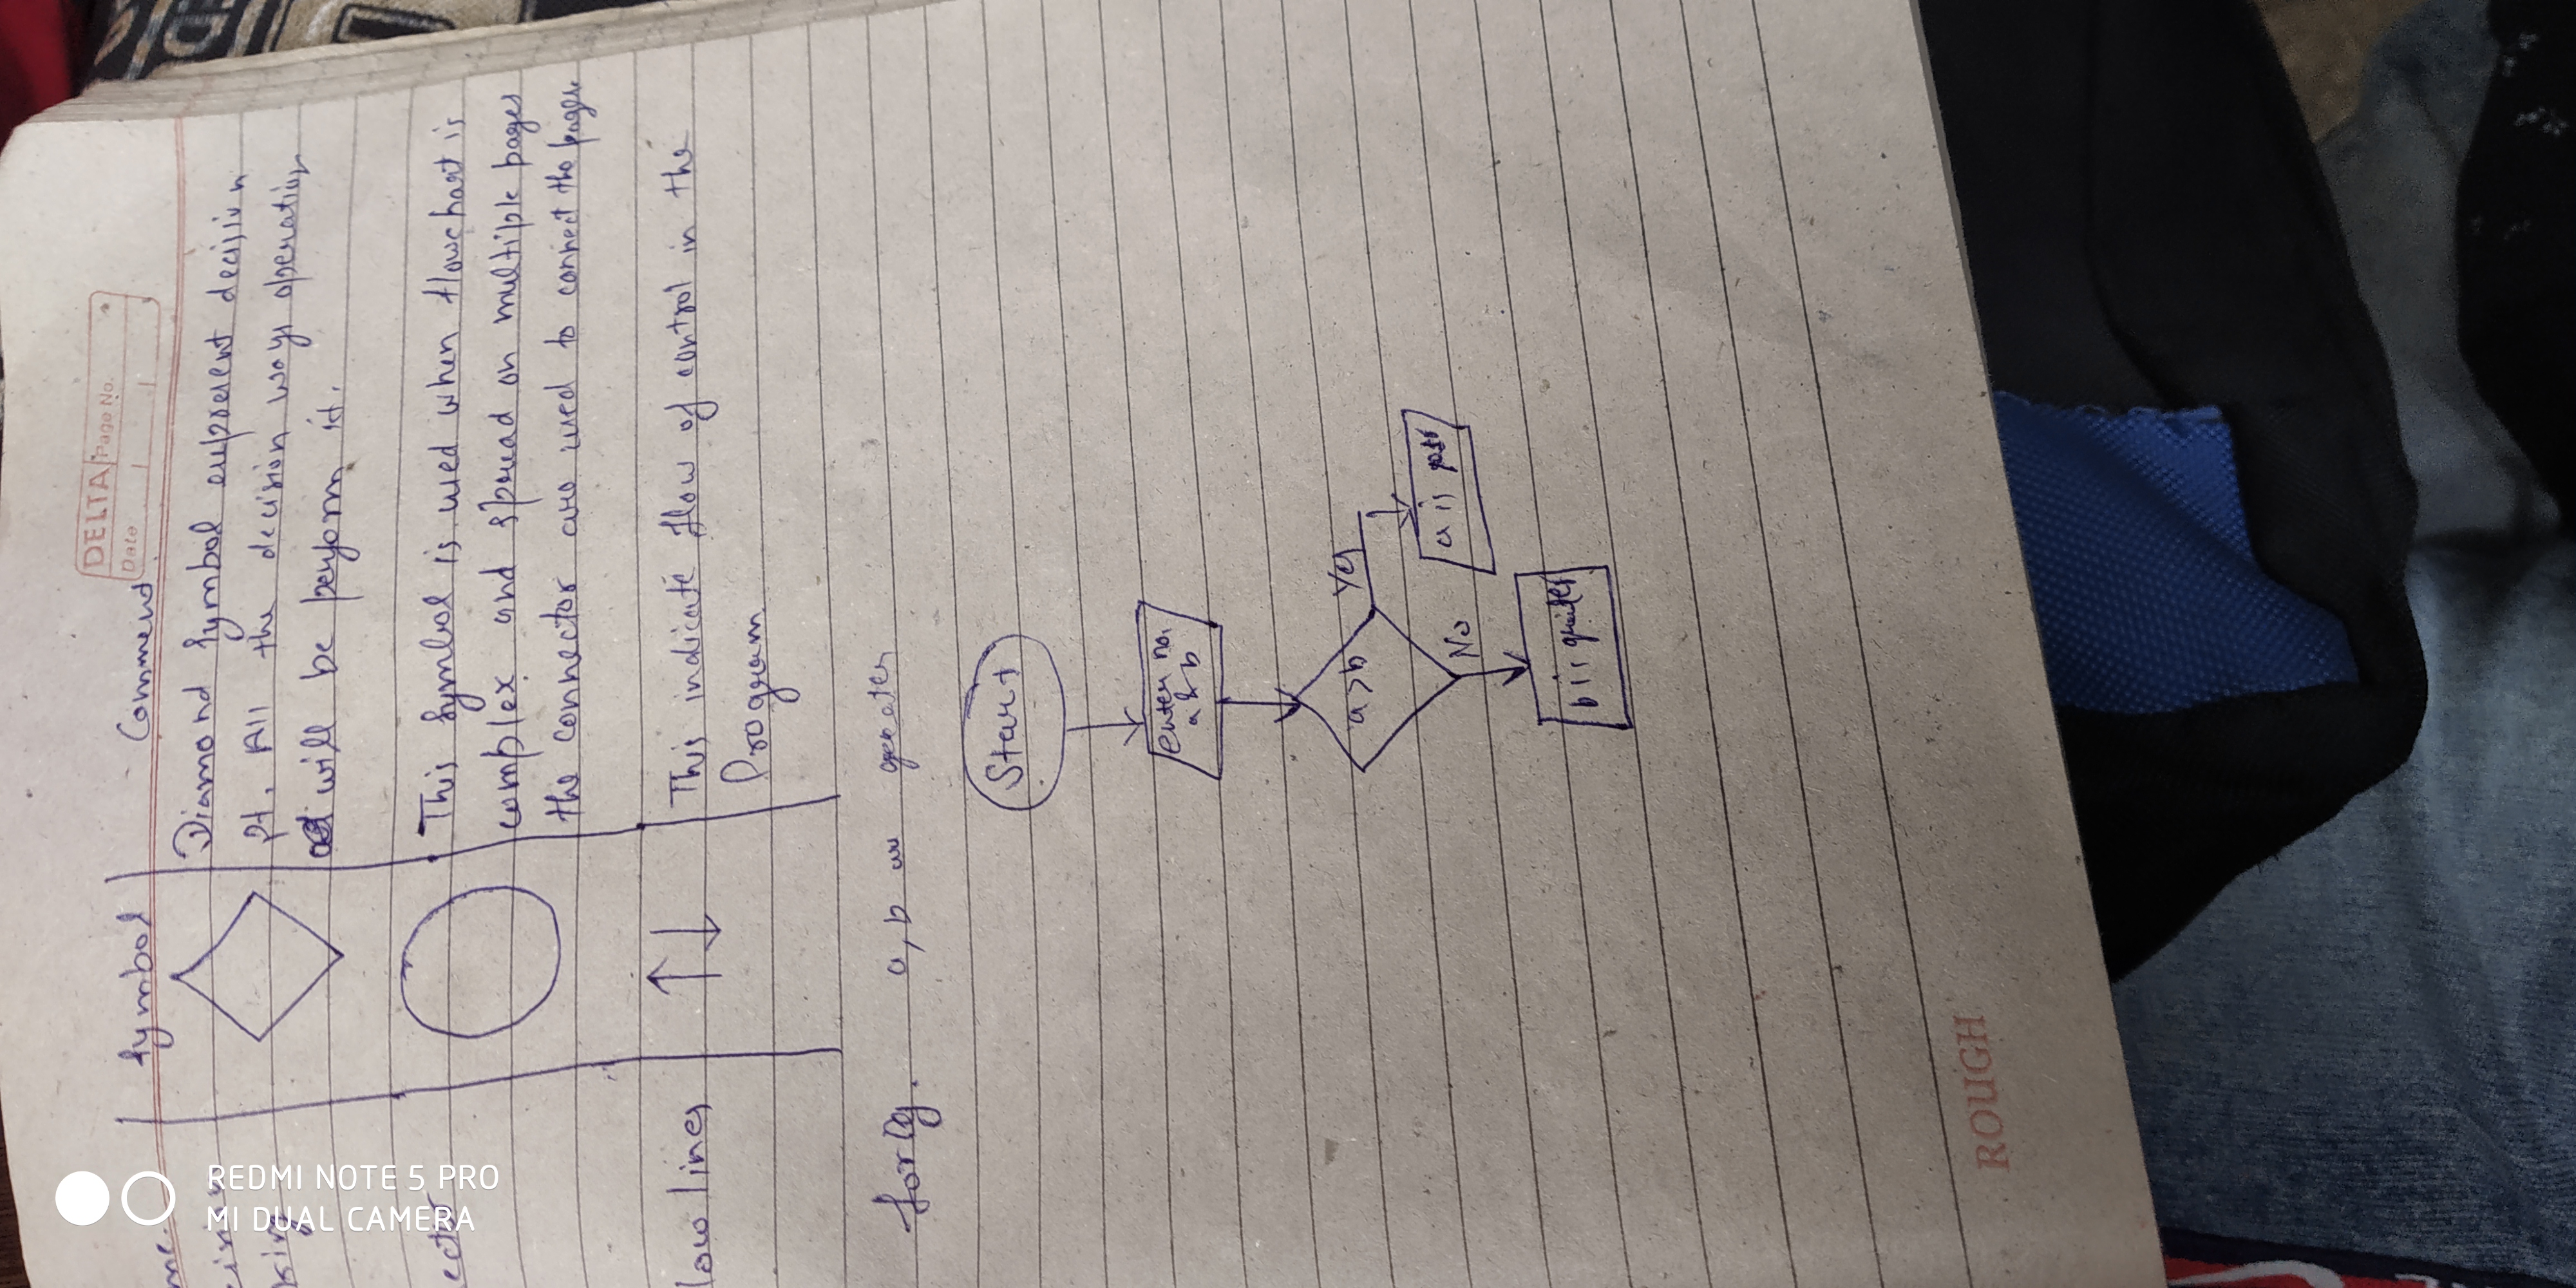 DELTA Page No.
Date
me. Symbol Commend
Diamond symbol represent decision
pt. All the decision way operation
will be peryorm it.
ector This symbol is used when flowchart is
complex and spread on multiple pages
the connector are used to connect the pages
low lines This indicate flow of control in the
Program
a, b greater
Start
enter no.
a & b
a>b
Yes
No
a is
b is greater
ROUGH
REDMI NOTE 5 PRO
MI DUAL CAMERA